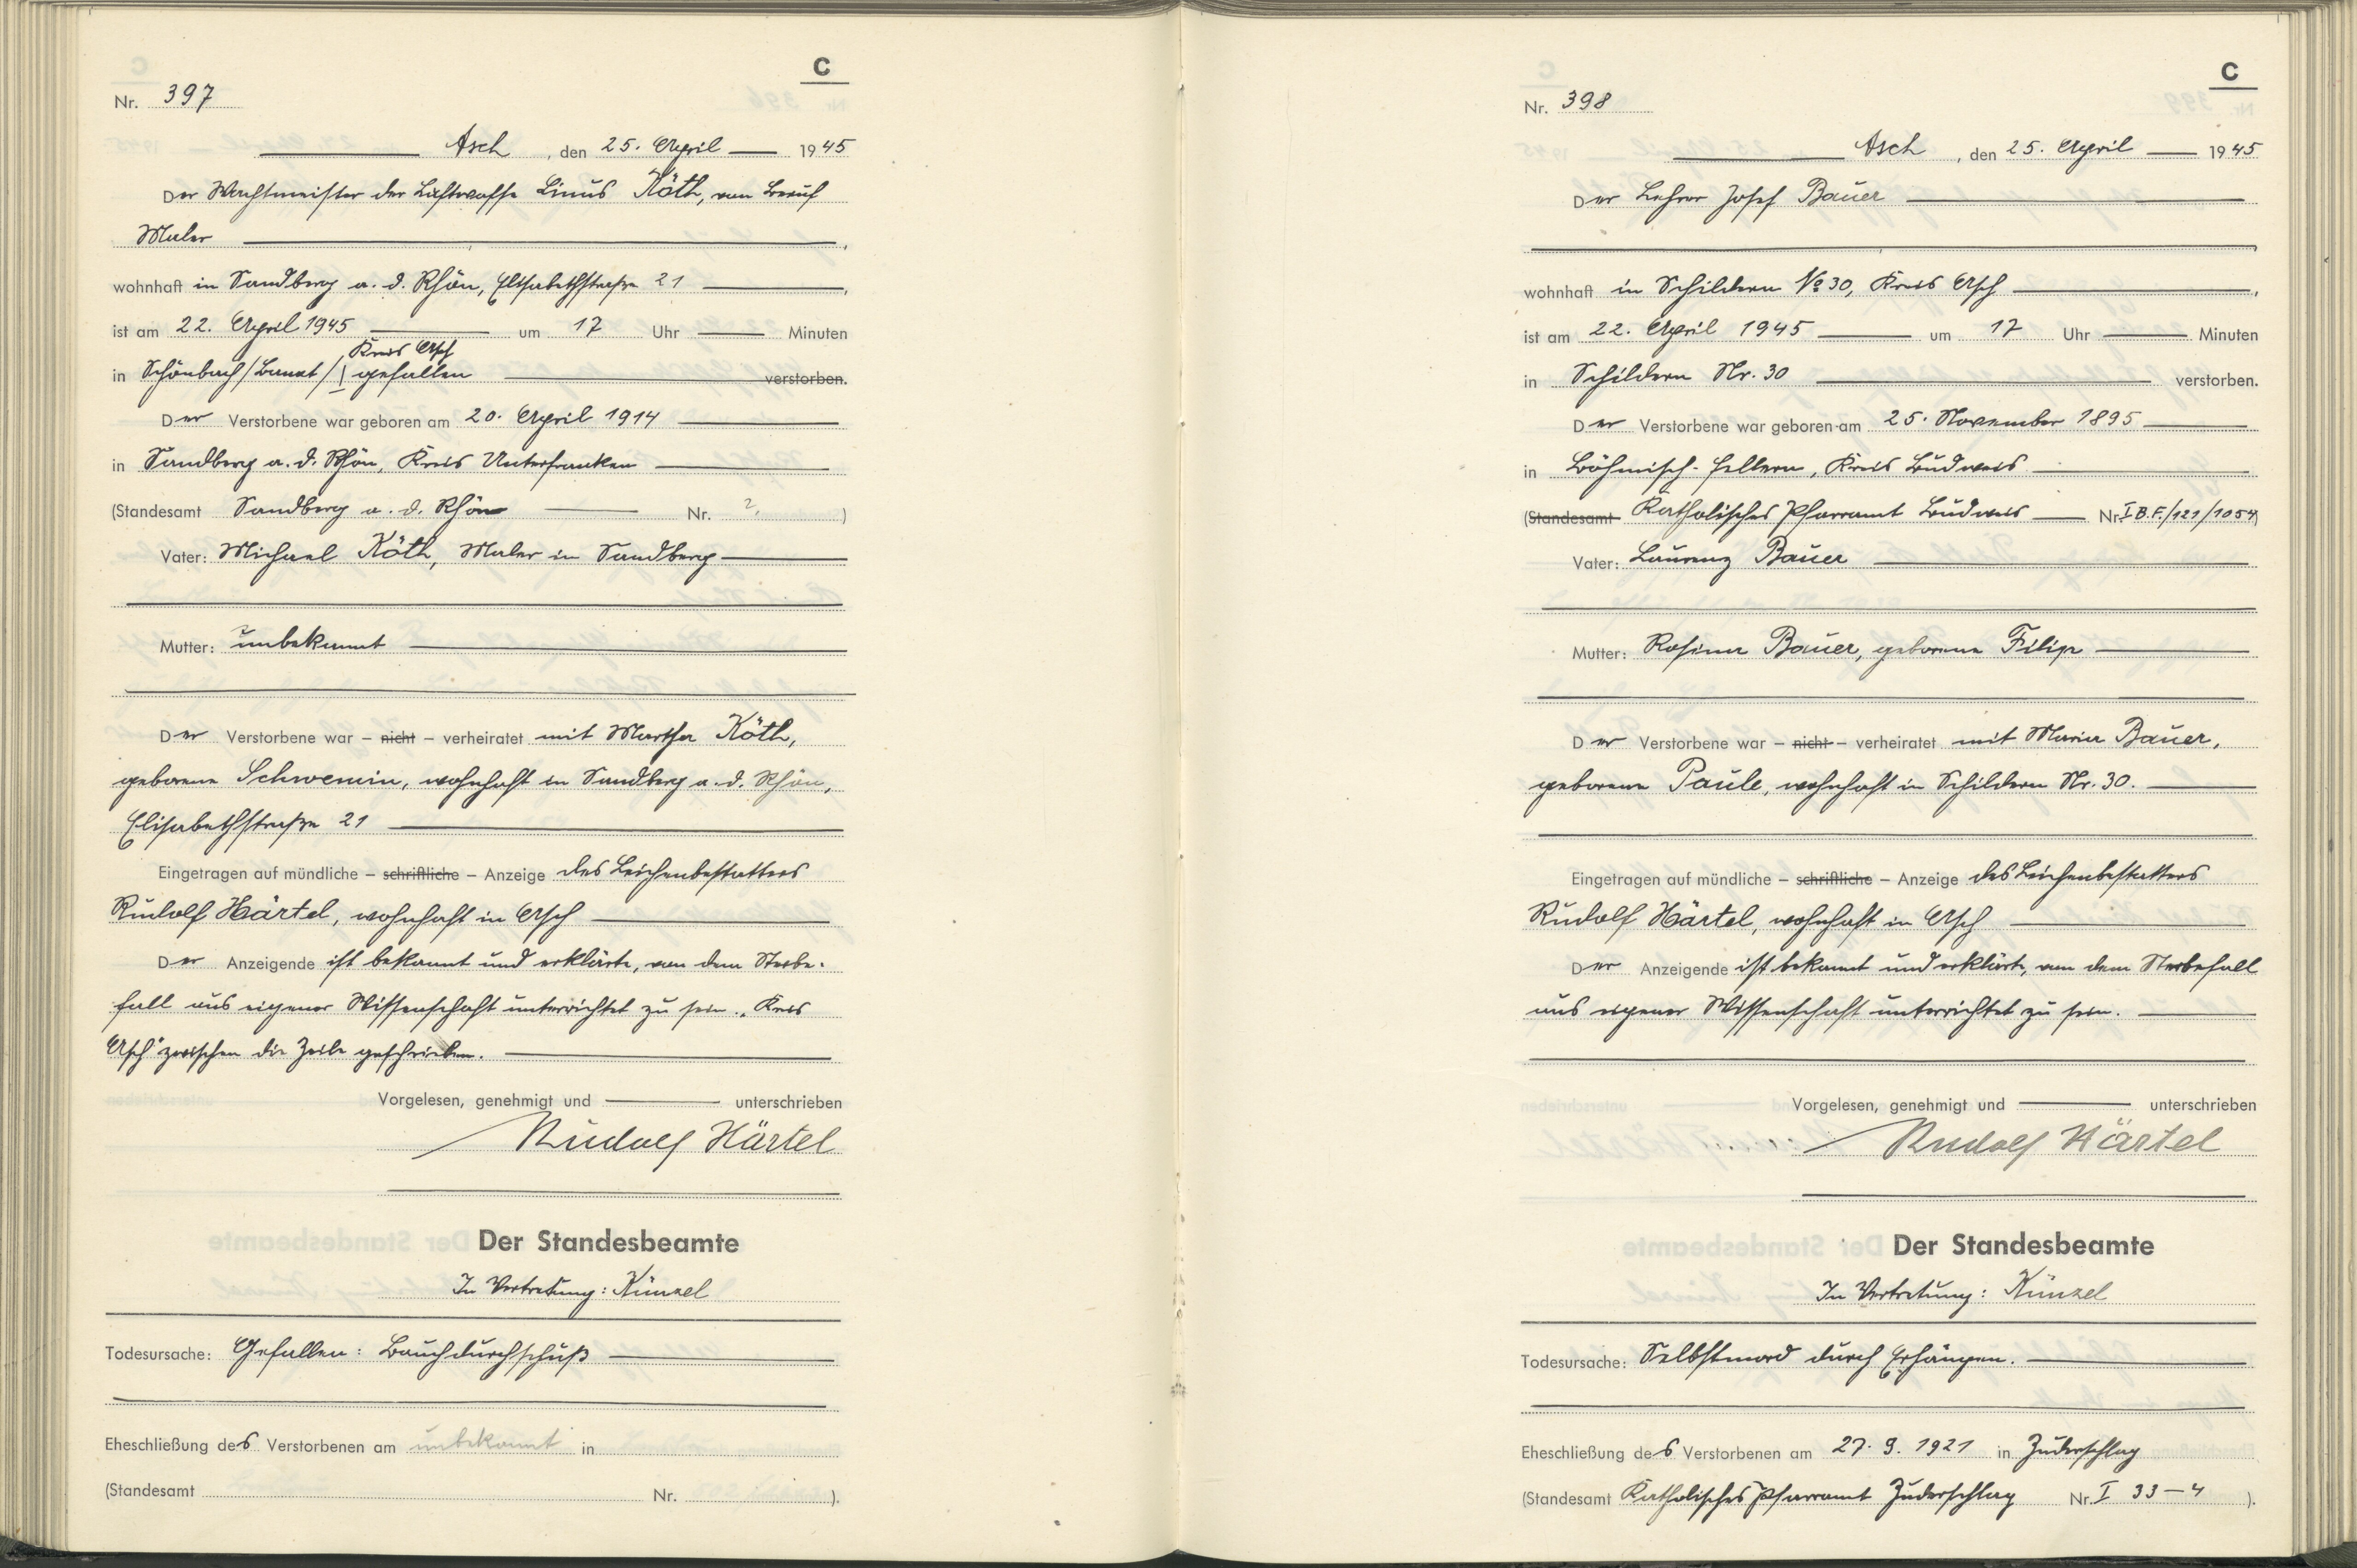 C
Nr. 397
Asch, den 25. April 1945
Der Wachtmeister der Luftwaffe Linus Köth, von Beruf
Maler,
wohnhaft in Sandberg a. d. Rhön, Elisabethstraße 21,
ist am 22. April 1945 um 17 Uhr Minuten
Kreis Asch
in Schönbach/Brand/ gefallen verstorben.
Der Verstorbene war geboren am 20. April 1914
in Sandberg a. d. Rhön, Kreis Unterfranken
(Standesamt Sandberg a. d. Rhön Nr. ?)
Vater: Michael Köth, Maler in Sandberg
Mutter: unbekannt
Der Verstorbene war – nicht – verheiratet mit Martha Köth,
geborene Schwemin, wohnhaft in Sandberg a. d. Rhön,
Elisabethstraße 21
Eingetragen auf mündliche – schriftliche – Anzeige des Leichenbestatters
Rudolf Härtel, wohnhaft in Asch
Der Anzeigende ist bekannt und erklärte, von dem Sterbe-
fall aus eigener Wissenschaft unterrichtet zu sein. „Kreis
Asch" zwischen die Zeile geschrieben.
Vorgelesen, genehmigt und unterschrieben
Rudolf Härtel
Der Standesbeamte
In Vertretung: Künzel
Todesursache: Gefallen: Bauchdurchschuß
Eheschließung des Verstorbenen am unbekannt in
(Standesamt Nr. ).
C
Nr. 398
Asch, den 25. April 1945
Der Lehrer Josef Bauer
,
wohnhaft in Schildern No 30, Kreis Asch,
ist am 22. April 1945 um 17 Uhr Minuten
in Schildern Nr. 30 verstorben.
Der Verstorbene war geboren am 25. November 1895
in Böhmisch-Fellern, Kreis Budweis
(Standesamt Katholisches Pfarramt Budweis Nr. I B.F./121/1054)
Vater: Laurenz Bauer
Mutter: Rosina Bauer, geborene Filip
Der Verstorbene war – nicht – verheiratet mit Maria Bauer,
geborene Paule, wohnhaft in Schildern Nr. 30.
Eingetragen auf mündliche – schriftliche – Anzeige des Leichenbestatters
Rudolf Härtel, wohnhaft in Asch
Der Anzeigende ist bekannt und erklärte, von dem Sterbefall
aus eigener Wissenschaft unterrichtet zu sein.
Vorgelesen, genehmigt und unterschrieben
Rudolf Härtel
Der Standesbeamte
In Vertretung: Künzel
Todesursache: Selbstmord durch Erhängen.
Eheschließung des Verstorbenen am 27. 9. 1921 in Zuderschlag
(Standesamt Katholisches Pfarramt Zuderschlag Nr. I 33–4 ).